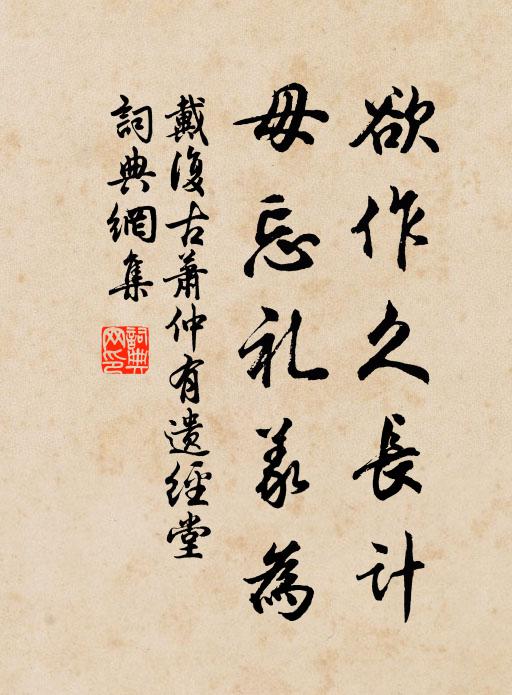 欲作久長計
毋忘礼義為
戴復古蕭仲有遺經堂
詞典網集
詞典網印